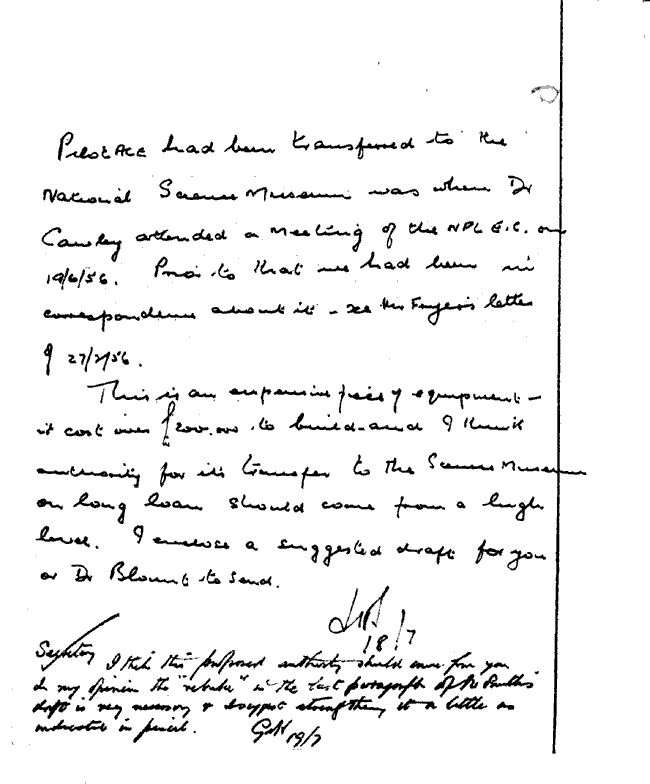 Pilot ACE had been transferred to the
National Science Museum was when Dr
Cawley attended a Meeting of the NPL E.C. on
19/6/56. Prior to that we had been in
correspondence about it - see Mr letter
of 27/2/56.
This is an expensive piece of equipment -
it cost over £200,000 to build - and I think
authority for its transfer to the Science Museum
on long loan should come from a high
level. I enclose a suggested draft for you
or Dr Blount to send.
18/7
Secretary I think this proposed authority should come from you
In my opinion the "rebuke" in the last paragraph of Mr
draft is very necessary & I suggest strengthening it a little as
indicated in pencil. GH 19/7